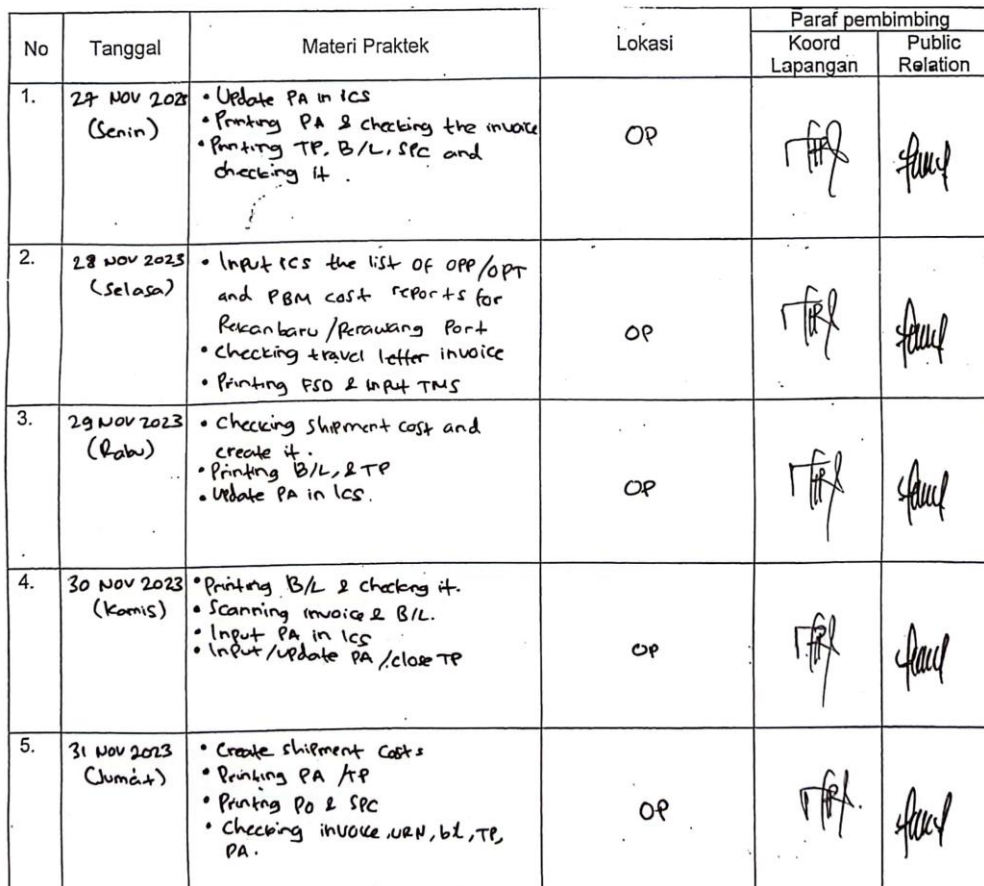 No Tanggal Materi Praktek Lokasi Paraf pembimbing
Koord Lapangan Public Relation
1. 27 NOV 2023 (Senin)
• Update PA in ICS
• Printing PA & checking the invoice
• Printing TP, B/L, SPC and
checking it.
OP
2. 28 NOV 2023 (Selasa)
• Input ICS the list OF OPP/OPT
and PBM cost reports for
Pekanbaru/Perawang Port
• Checking travel letter invoice
• Printing FSO & input TMS
OP
3. 29 NOV 2023 (Rabu)
• Checking shipment cost and
create it.
• Printing B/L, & TP
• Update PA in ICS.
OP
4. 30 NOV 2023 (Kamis)
• Printing B/L & checking it.
• Scanning invoice & B/L.
• Input PA in ICS
• Input/update PA/close TP
OP
5. 31 NOV 2023 (Jum'at)
• Create shipment costs
• Printing PA/TP
• Printing PO & SPC
• Checking invoice, URN, bl, TP,
PA.
OP